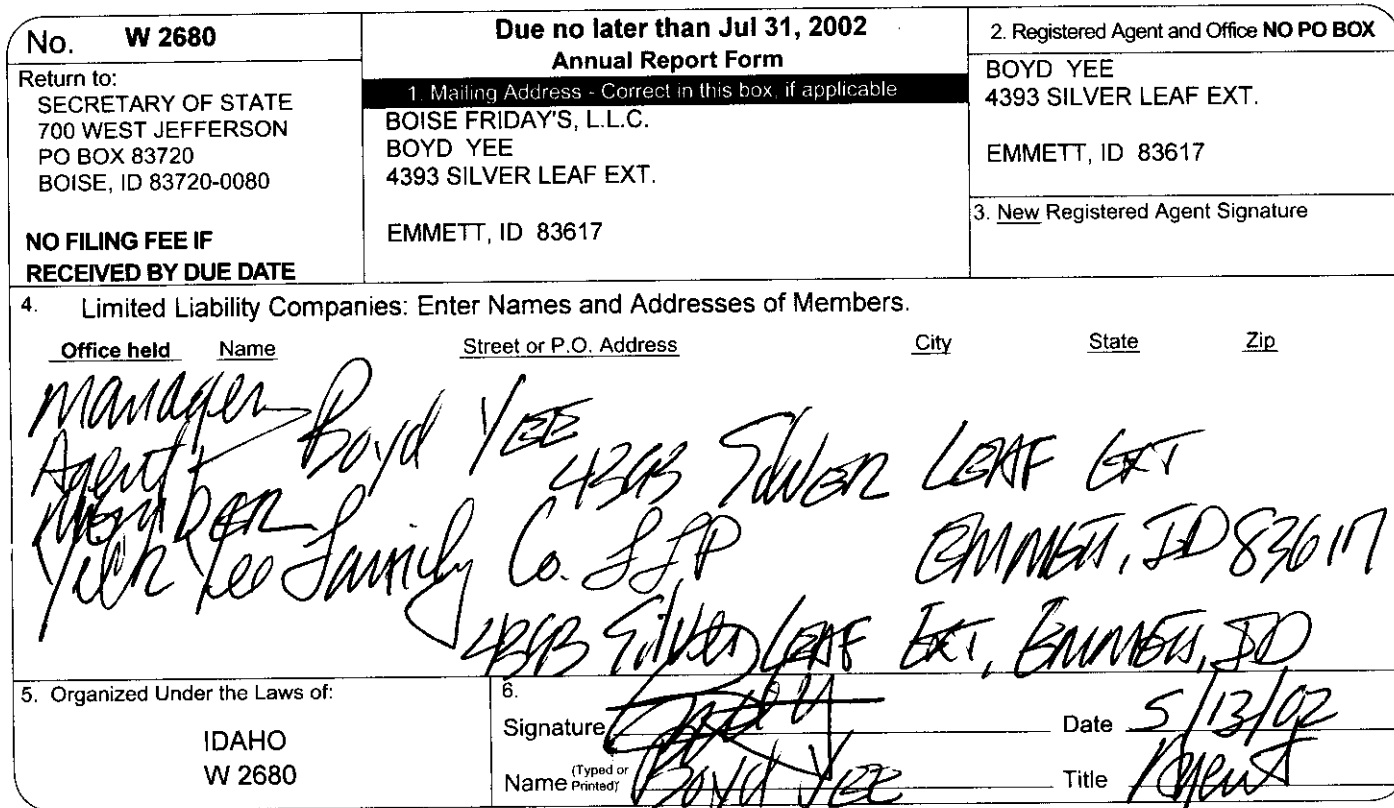 No. W 2680
Return to:
SECRETARY OF STATE
700 WEST JEFFERSON
PO BOX 83720
BOISE, ID 83720-0080
NO FILING FEE IF
RECEIVED BY DUE DATE
Due no later than Jul 31, 2002
Annual Report Form
1. Mailing Address - Correct in this box, if applicable
BOISE FRIDAY'S, L.L.C.
BOYD YEE
4393 SILVER LEAF EXT.
EMMETT, ID 83617
2. Registered Agent and Office NO PO BOX
BOYD YEE
4393 SILVER LEAF EXT.
EMMETT, ID 83617
3. New Registered Agent Signature
4. Limited Liability Companies: Enter Names and Addresses of Members.
Office held Name Street or P.O. Address City State Zip
Manager Boyd YEE
Agent & 4393 SILVER LEAF EXT
MEMBER EMMETT, ID 83617
Yee Family Co. LLP
4393 Silver LEAF EXT, EMMETT, ID
5. Organized Under the Laws of:
IDAHO
W 2680
6.
Signature Date 5/13/02
Name (Typed or Printed) Boyd YEE Title Agent